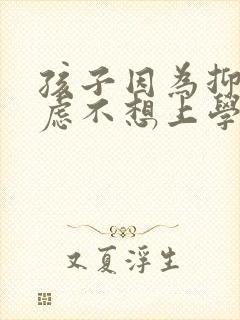 孩子因為抑
慮不想上學
又夏浮生